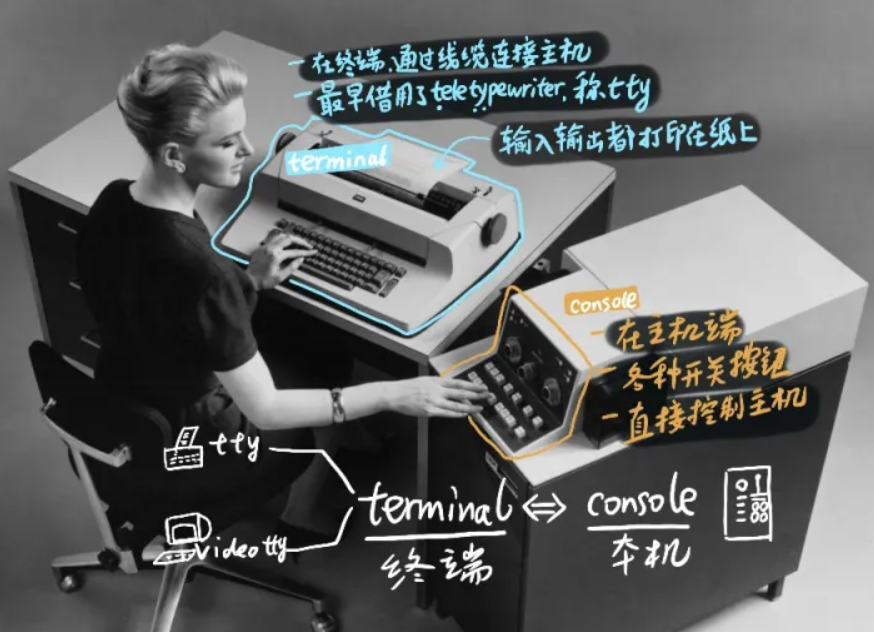 - 在终端,通过线缆连接主机
- 最早借用了teletypewriter,称tty
输入输出都打印在纸上
terminal
console
- 在主机端
- 各种开关按钮
- 直接控制主机
tty
video tty
terminal ⇔ console
终端
本机